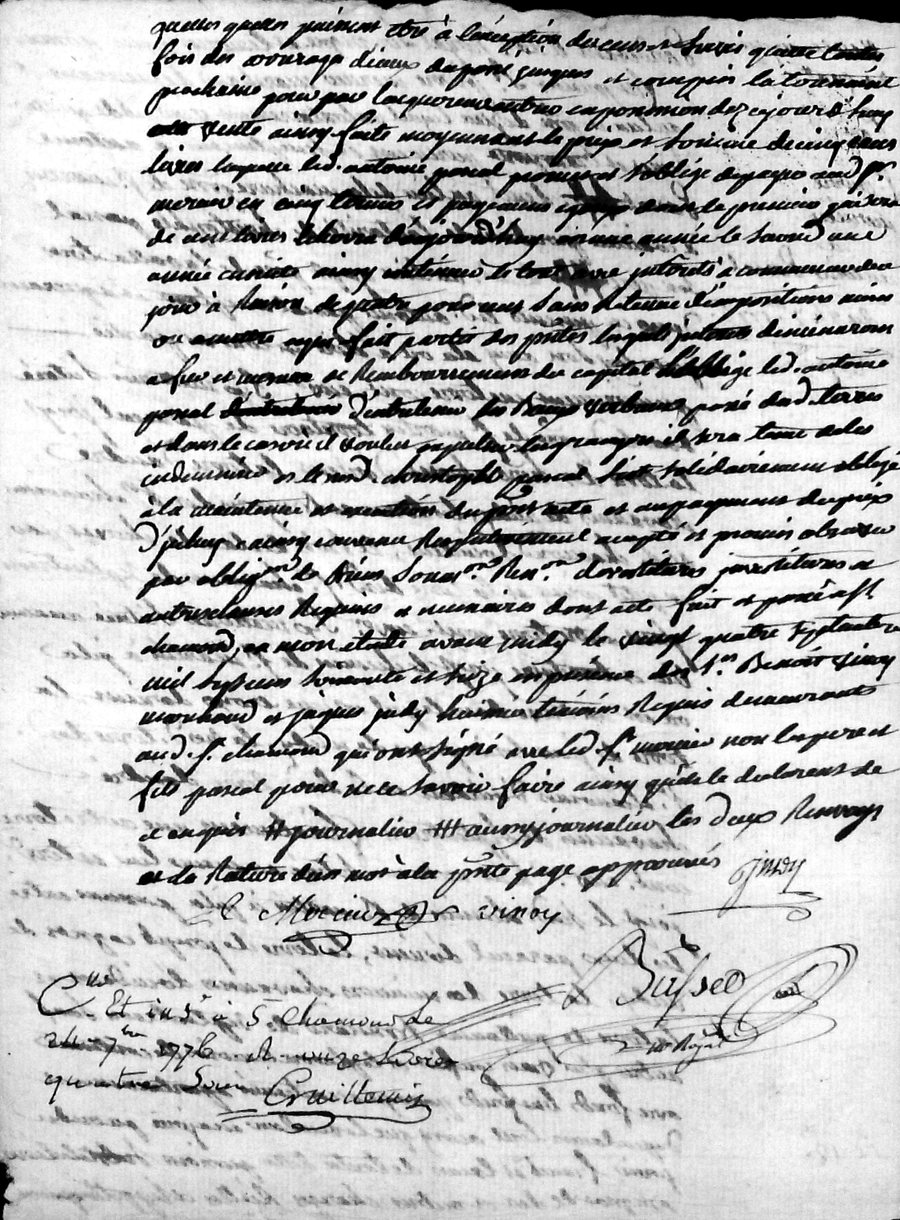 quelles quelles puissent être à l'exception des cens et servis quitte toutes
fois des arrérages d'iceux du passé jusques et compris la toussaint
prochaine pour par l'acquereur entrer en possession dez ce jourd'huy
vente ainsy faite moyennant le prix et somme de cinq cens
livres laquelle led. antoine pascal promet et s'oblige de payer aud. sr.
mercier en cinq termes et payemens egaux dont le premier sera
de cent livres echerra d'aujourd'huy en une année le second une
année ensuite ainsy continuer le tout avec interets a commencer de ce
jour à Raison de quatre pour cent sans Retenue d'impositions mises
ou a mettre ayant fait partie des pactes lesquels interets diminueront
a fur et mesure de Remboursement du capital s'oblige led. antoine
pascal d'entretenir les Baux verbaux passé dud. terres
et dans le cas où il voulut expulser les grangers il sera tenu de les
indemniser et led. christophle pascal s'est solidairement obligé
à la maintenue et execution du pnt acte et au payement du prix
d'icelluy ainsy convenu Respectivement accepté et promis observer
par obligon. de biens soumon. Renon. devestitures investitures et
autres clauses Requises et necessaires dont acte fait et passé a st.
chamond, en mon étude avant midy le vingt quatre septembre
mil sept cens soixante et seize en presence de sr. Benoît vinoy
marchand et jaques judy huissier témoins Requis demeurants
aud. st. chamond qui ont signé avec led. sr. mercier non les pere et
fils pascal pour ne le savoir faire ainsy qu'ils le declarent de
ce enquis # journalier ## aussy journalier les deux Renvoys
et la Rature d'un mot à la pnte page approuvés
judy
Mercier vinoy
Cllé. Et insé à S. Chamond Le
24 7bre 1776 R. onze Livres
quatre Sous
Guillemin
no. Royal